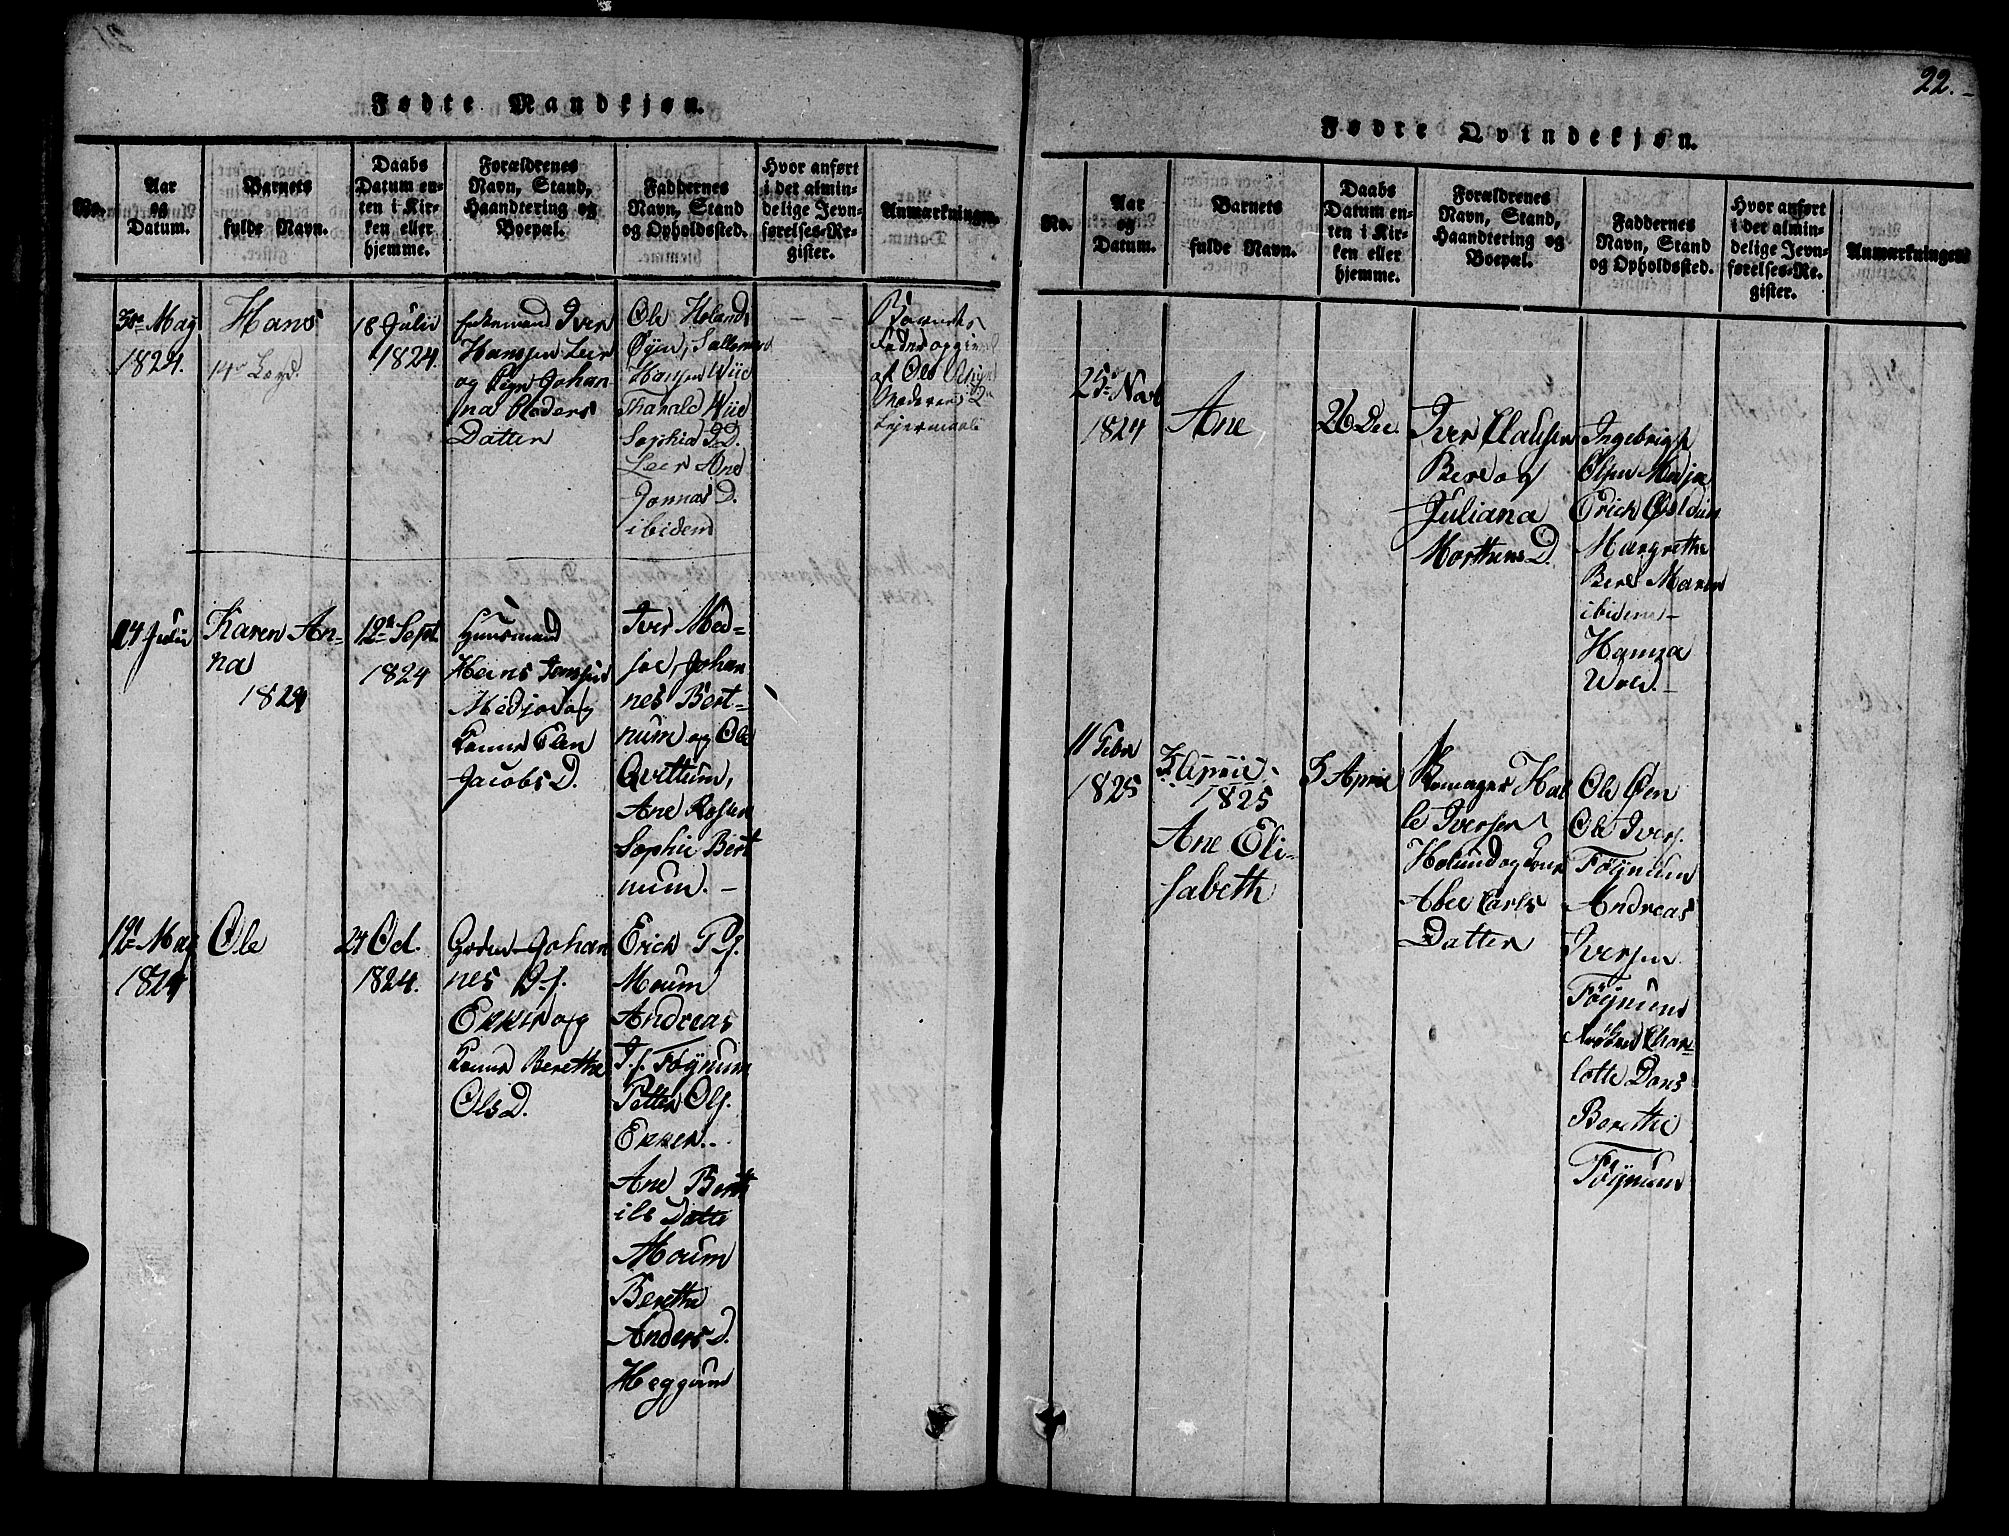 Fødte Mandkjøn.
No.
Aar
og
Datum.
Barnets
fulde Navn.
Daabs
Datum en-
ten i Kir-
ken eller
hjemme.
Forældrenes
Navn, Stand,
Haandtering og
Boepæl.
Faddernes
Navn, Stand
og Opholdssted.
Hvor anført
i det almin-
delige Jevn-
førelses-Re-
gister.
Anmærkninger.
30te May
1824.
Hans
18 Julii
1824.
Iver
Hanssen Leer
og Pige Johan
na
Datter
Ole Holands
Øyen,
Hansen Wiie
Harald Wiie
Sophia D.
Leer Ane
Jonnas D.
ibidem
Barnets
Fader
af Ole
Moderens 2
Leiermaal
24 Julii
Karen An-
na
1824
12te Sept.
1824
Huusmand
Hans Jenssen
Medjae og
Kone Elen
Jacobs D.
Iver Med-
jae, Johan
nes Bert-
num og Ole
Qvettum,
Ane
Sophie Bert
num. -
12te May
1824
Ole
24 Oct.
1824.
Johan
nes
Ekker og
Kone Berethe
Ols D.
Erick
Moum
Andreas
Føynum
Petter Ols.
Ekker.
Ane Bert
ils Datte
Moum
Berethe
Anders D.
Heggum
22.
Fødte Qvindekjøn.
No.
Aar
og
Datum.
Barnets
fulde Navn.
Daabs
Datum en-
ten i Kir-
ken eller
hjemme.
Forældrenes
Navn, Stand,
Haandtering og
Boepæl.
Faddernes
Navn, Stand
og Opholdssted.
Hvor anført
i det almin-
delige Jevn-
førelses-Re-
gister.
Anmærkninger
25te Novb
1824
Ane
26 Dec.
Iver Clausen
Bere og
Juliana
Morthens D.
Ingebrigt
Olsen Medjae
Erick
Margrethe
Bere Maren
ibidem
Hanna
Wold. -
11 Febr
1825
3 April
1825
Ane Eli-
sabeth
3 April
Hal
le Iversen
Holand og Kone
Abel Carls
Datter
Ole Øen
Ole Ivers.
Føynum
Andreas
Iversen
Føynum
Char-
lotte Dons
Berethe
Føynum